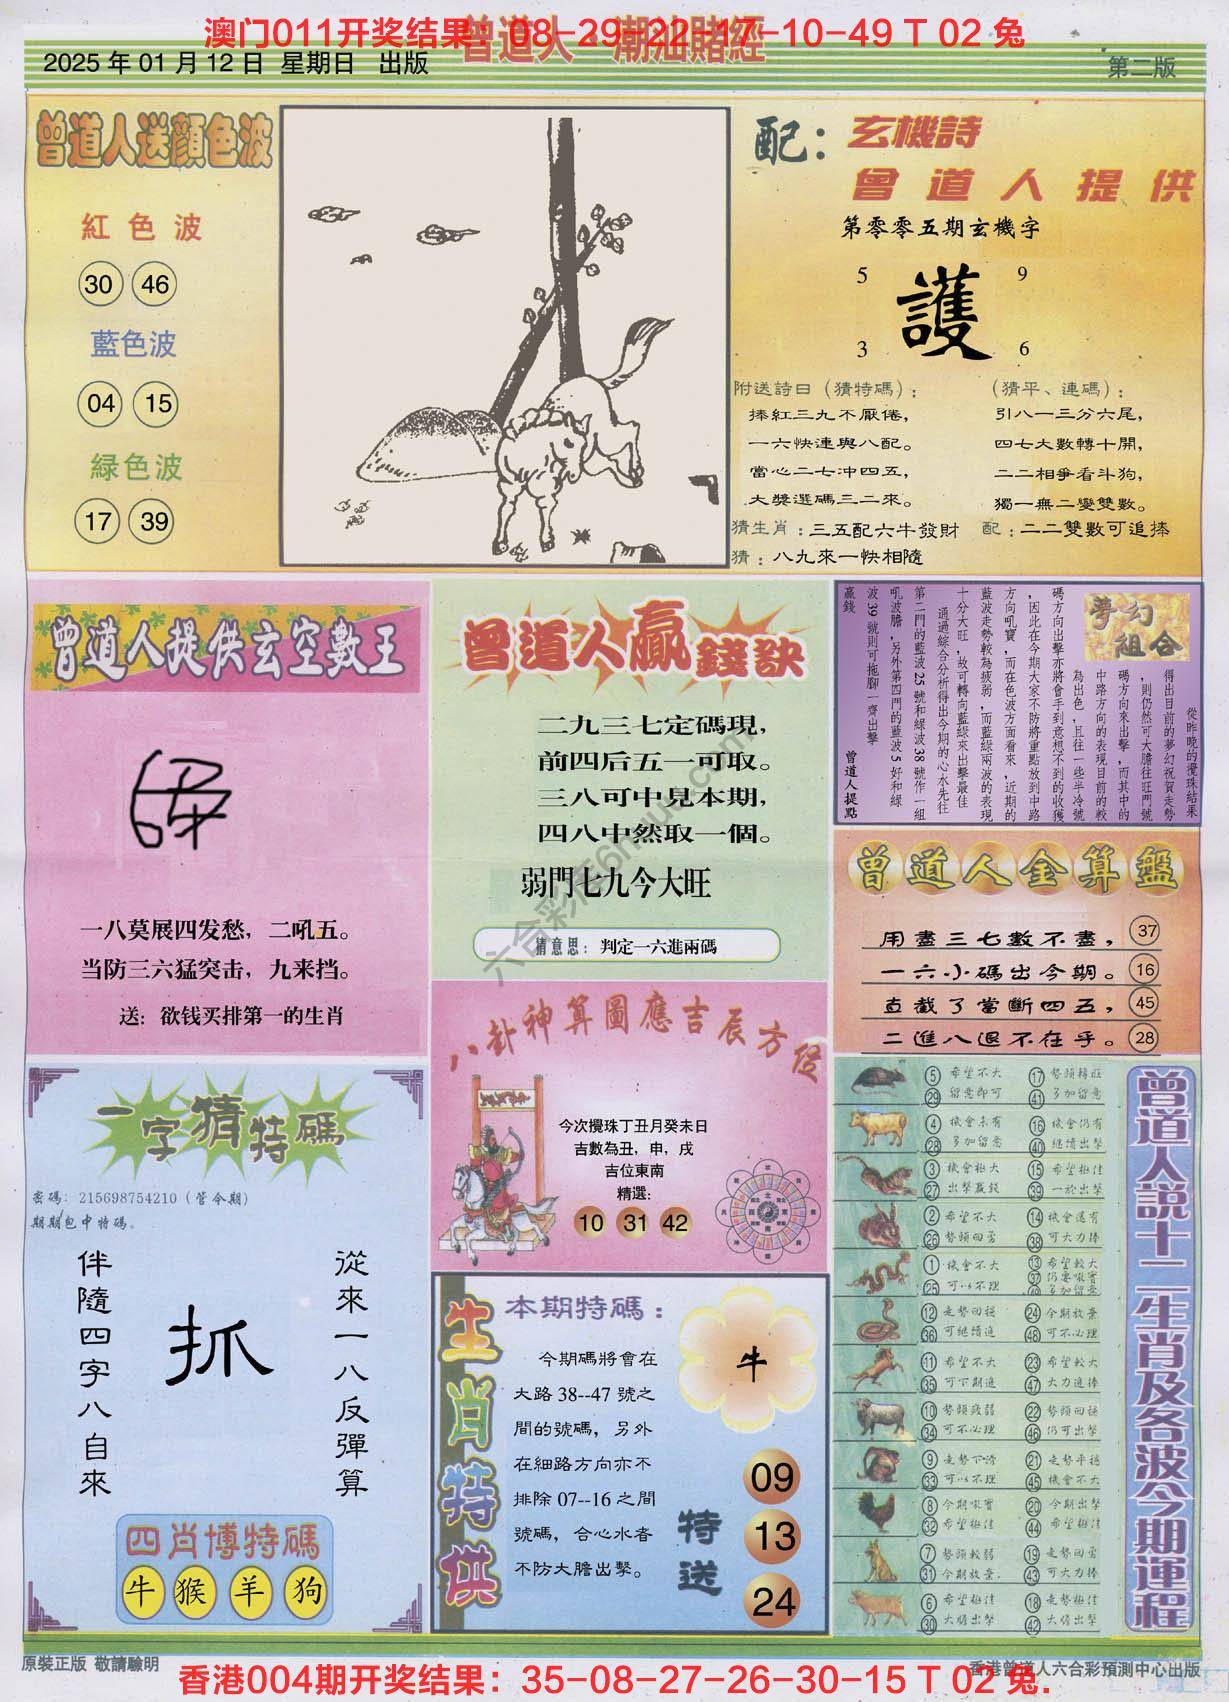 澳门011开奖结果：08-29-22-17-10-49 T 02 兔
曾道人 潮汕賭經
2025 年 01 月 12 日 星期日 出版
第二版
曾道人送顔色波
紅色波
30 46
藍色波
04 15
緑色波
17 39
配：
玄機詩
曾道人提供
第零零五期玄機字
5 9
護
3 6
附送詩日（猜特碼）：
捧紅三九不厭倦，
一六快連與八配。
當心二七冲四五，
大獎選碼三二來。
（猜平、連碼）：
引八一三分六尾，
四七大數轉十開，
二二相爭看斗狗，
獨一無二變雙數。
猜生肖：三五配六牛發財
配：二二雙數可追捧
猜：八九來一快相隨
曾道人提供玄空數王
一八莫展四发愁，二吼五。
当防三六猛突击，九来挡。
送：欲钱买排第一的生肖
曾道人贏錢訣
二九三七定碼現，
前四后五一可取。
三八可中見本期，
四八中然取一個。
弱門七九今大旺
猜意思：判定一六進兩碼
夢幻組合
從昨晚的攪珠結果
得出目前的夢幻祝賀走勢
，則仍然可大膽往旺門號
碼方向來出擊，而其中的
中路方向的表現目前的較
為出色，且往一些半冷號
碼方向出擊亦將會手到意想不到的收獲
，因此在今期大家不防將重點放到中路
方向吼寶，而在色波方面看來，近期的
藍波走勢較為疲弱，而藍綠兩波的表現
十分大旺，故可轉向藍綠來出擊最佳
通過綜合分析得出今期的心水先往
第二門的藍波 25 號和綠波 38 號作一組
吼波膽，另外第四門的藍波 5 好和綠
波 39 號則可拖腳一齊出擊
贏錢
曾道人提點
曾道人金算盤
用盡三七數不盡， 37
一六小碼出今期。 16
直截了當斷四五， 45
二進八退不在乎。 28
八卦神算圖應吉辰方位
今次攪珠丁丑月癸未日
吉數為丑，申，戌
吉位東南
精選:
10 31 42
一字猜特碼
密碼: 215698754210（管今期）
期期包中特碼。
從來一八反彈算
抓
伴隨四字八自來
四肖博特碼
牛 猴 羊 狗
生肖特供
本期特碼：
今期碼將會在
大路 38--47 號之
間的號碼，另外
在細路方向亦不
排除 07--16 之間
號碼，合心水者
不防大膽出擊。
牛
特送
09
13
24
曾道人説十二生肖及各波今期運程
5 希望不大
29 留意即可
17 勢頭轉旺
41 多加留意
4 機會未有
28 多加留意
16 機會仍有
40 繼續出擊
3 機會極大
27 出擊贏錢
15 希望極佳
39 一於出擊
2 希望不大
26 勢頭回勇
14 機會還有
38 可大力捧
1 機會不大
25 可以不理
13 希望較大
12 走勢回穩
36 可繼續追
24 今期放棄
48 可不必理
11 希望不大
35 可下期追
23 希望較大
47 大力追捧
10 勢頭疲弱
34 可不必理
22 勢頭回穩
46 仍可出擊
9 走勢下滑
33 可以不理
21 走勢平穩
45 機會不大
8 今期吼寶
32 希望極佳
20 今期出擊
44 希望極佳
7 勢頭較弱
31 今期放棄.
19 走勢回勇
43 可大力捧
6 希望極佳
30 大膽出擊
18 走勢極佳
42 大膽出擊
原裝正版 敬請驗明
香港曾道人六合彩預測中心出版
香港004期开奖结果：35-08-27-26-30-15 T 02 兔.